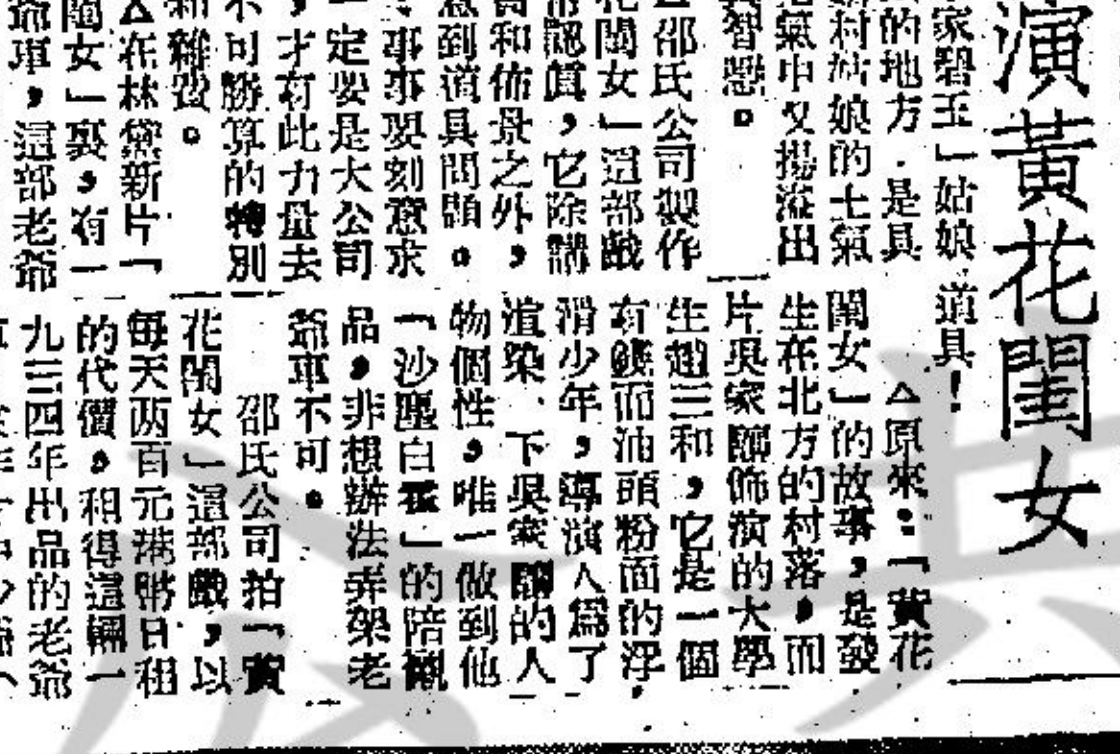 演黃花閨女
家碧玉」姑娘
的地方．是具
村姑娘的土氣
氣中又揚溢出
智慧。
邵氏公司製作
花閨女」這部戲
常認眞，它除講
和佈景之外，
意到道具問題。
事事要刻意求
一定要是大公司
，才有此力量去
不可勝算的特別
和雜費。
△在林黛新片「
閨女」裏，有一
爺車，這部老爺
道具！
△原來：「黃花
閨女」的故事，是發
生在北方的村落，而
片吳家驤飾演的大學
生趙三和，它是一個
有錢而油頭粉面的浮
滑少年，導演人爲了
渲染、下吳家驤的人
物個性，唯一做到他
「沙塵白霍」的陪襯
品，非想辦法弄架老
爺車不可。
邵氏公司拍「黃
花閨女」這部戲，以
每天两百元港幣日租
的代價，租得這輛一
九三四年出品的老爺